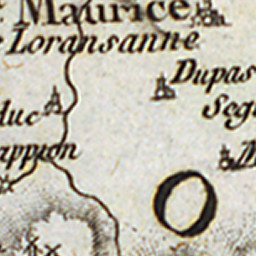 Maurice
Loransanne
Dupas
Seg
duc
appion
O
M